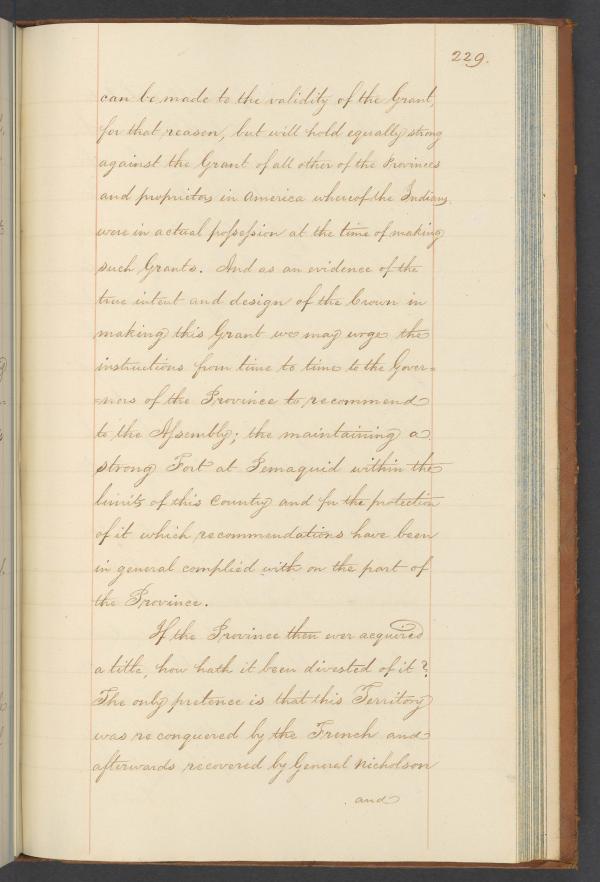 229.
can be made to the validity of the Grant,
for that reason, but will hold equally strong
against the Grant of all other of the Provinces
and proprietors in America whereof the Indians
were in actual possession at the time of making
such Grants. And as an evidence of the
true intent and design of the Crown in
making this Grant we may urge the
instructions from time to time to the Gover=
=nors of the Province to recommend
to the Assembly; the maintaining a
strong Fort at Pemaquid within the
limits of this Country and for the protection
of it which recommendations have been
in general complied with on the part of
the Province.
If the Province then ever acquired
a title, how hath it been divested of it?
The only pretence is that this Territory
was reconquered by the French and
afterwards recovered by General Nicholson
and